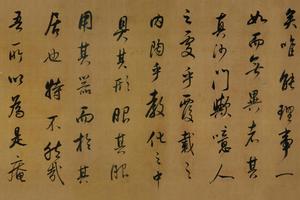 矣唯能理事一
如而無異者其
真沙門歟噫人
之處乎覆載之
内陶乎教化之中
具其形眼其眼
用其器而於其
居也特不然哉
吾所以為是庵